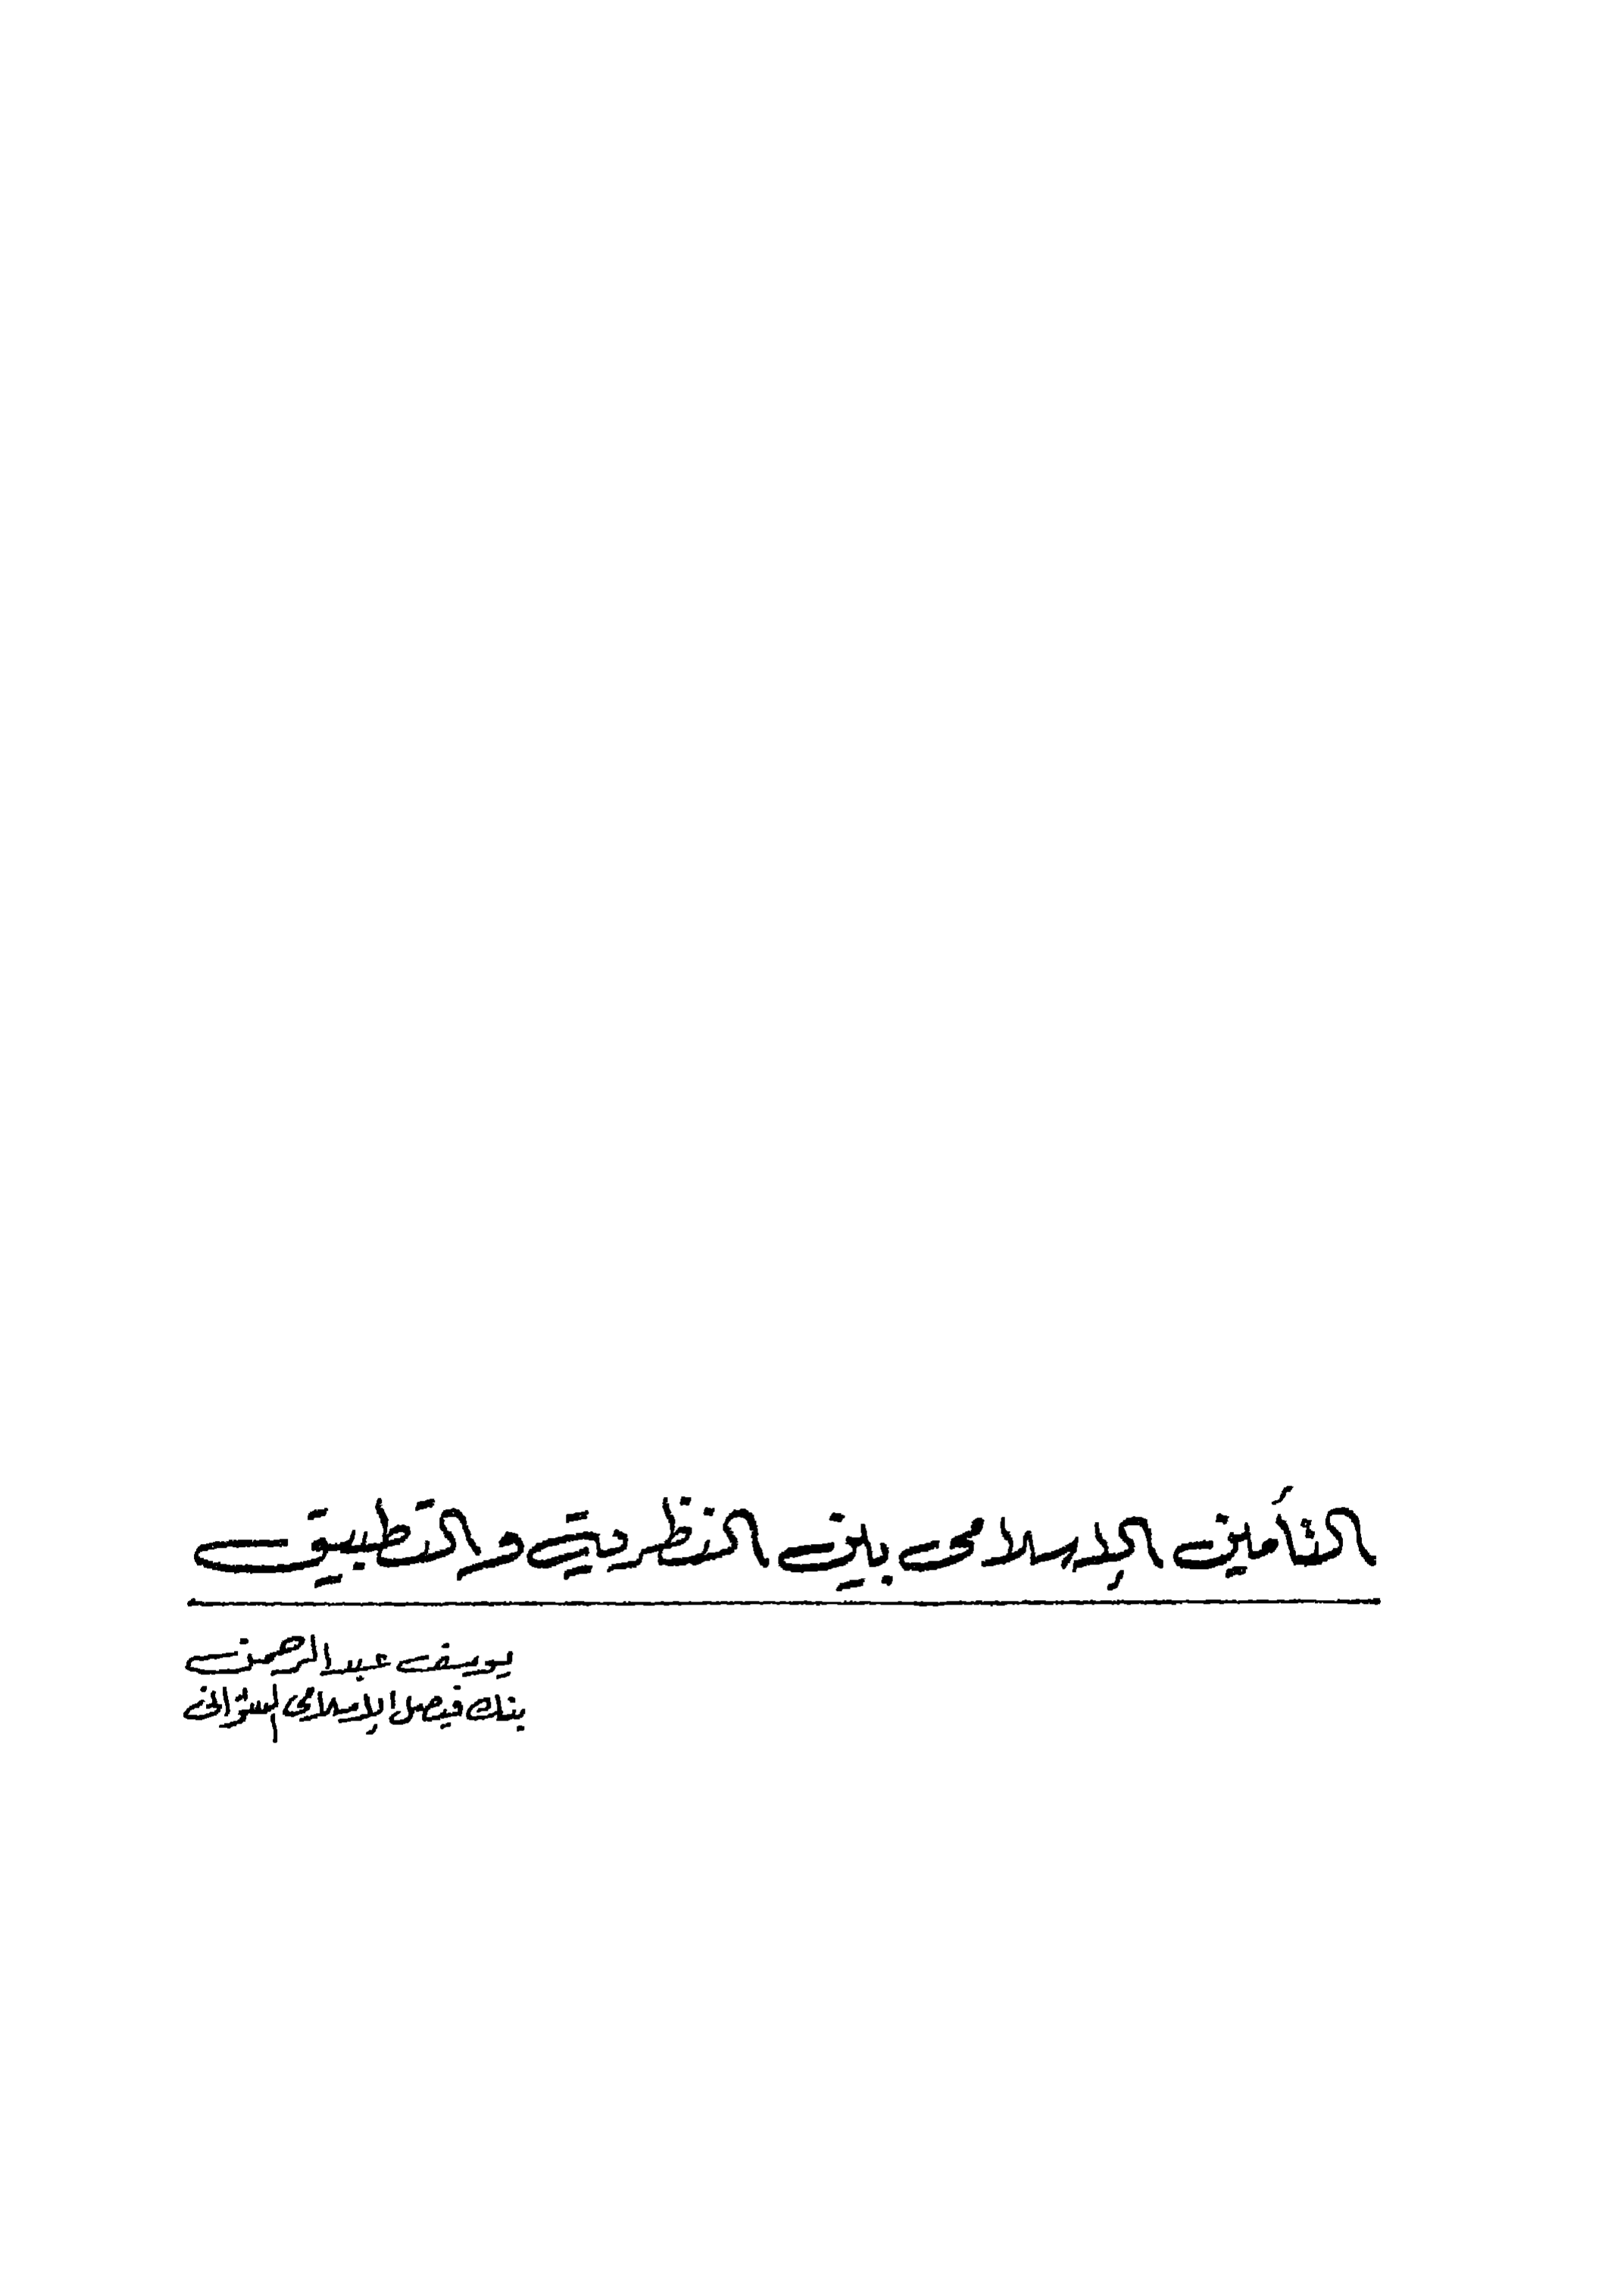 التأمين الإسلامى بين النظرية والتطبيق
يوسف عبد الرحمن
بنك فيصل الإسلامى السودانى